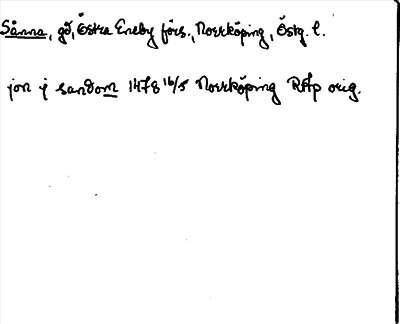 Sånna, gd, Östra Eneby förs., Norrköping, Östg. l.
jon j sandom 1478 16/5 Norrköping RAp orig.